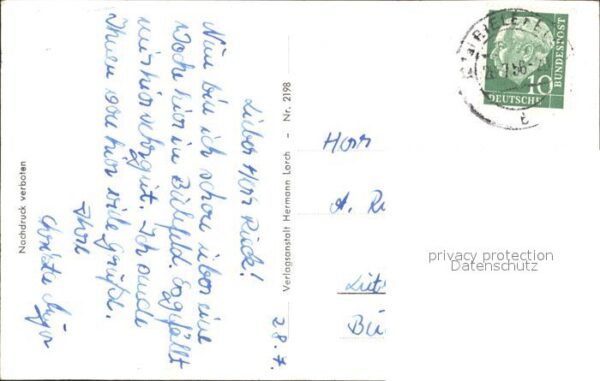 28.7.
Lieber Herr Rück!
Nun bin ich schon über eine
Woche hier in Bielefeld. Es gefällt
mir hier sehr gut. Ich sende
Ihnen von hier viele Grüße.
Ihre
Nachdruck verboten
Verlagsanstalt Hermann Lorch – Nr. 2198
BIELEFE
10
DEUTSCHE
BUNDESPOST
Herr
A. R
privacy protection
Datenschutz